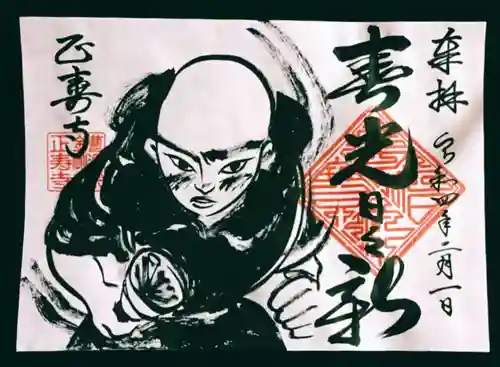 奉拝
令和四年二月一日
寿光日々新
正寿寺
正寿寺